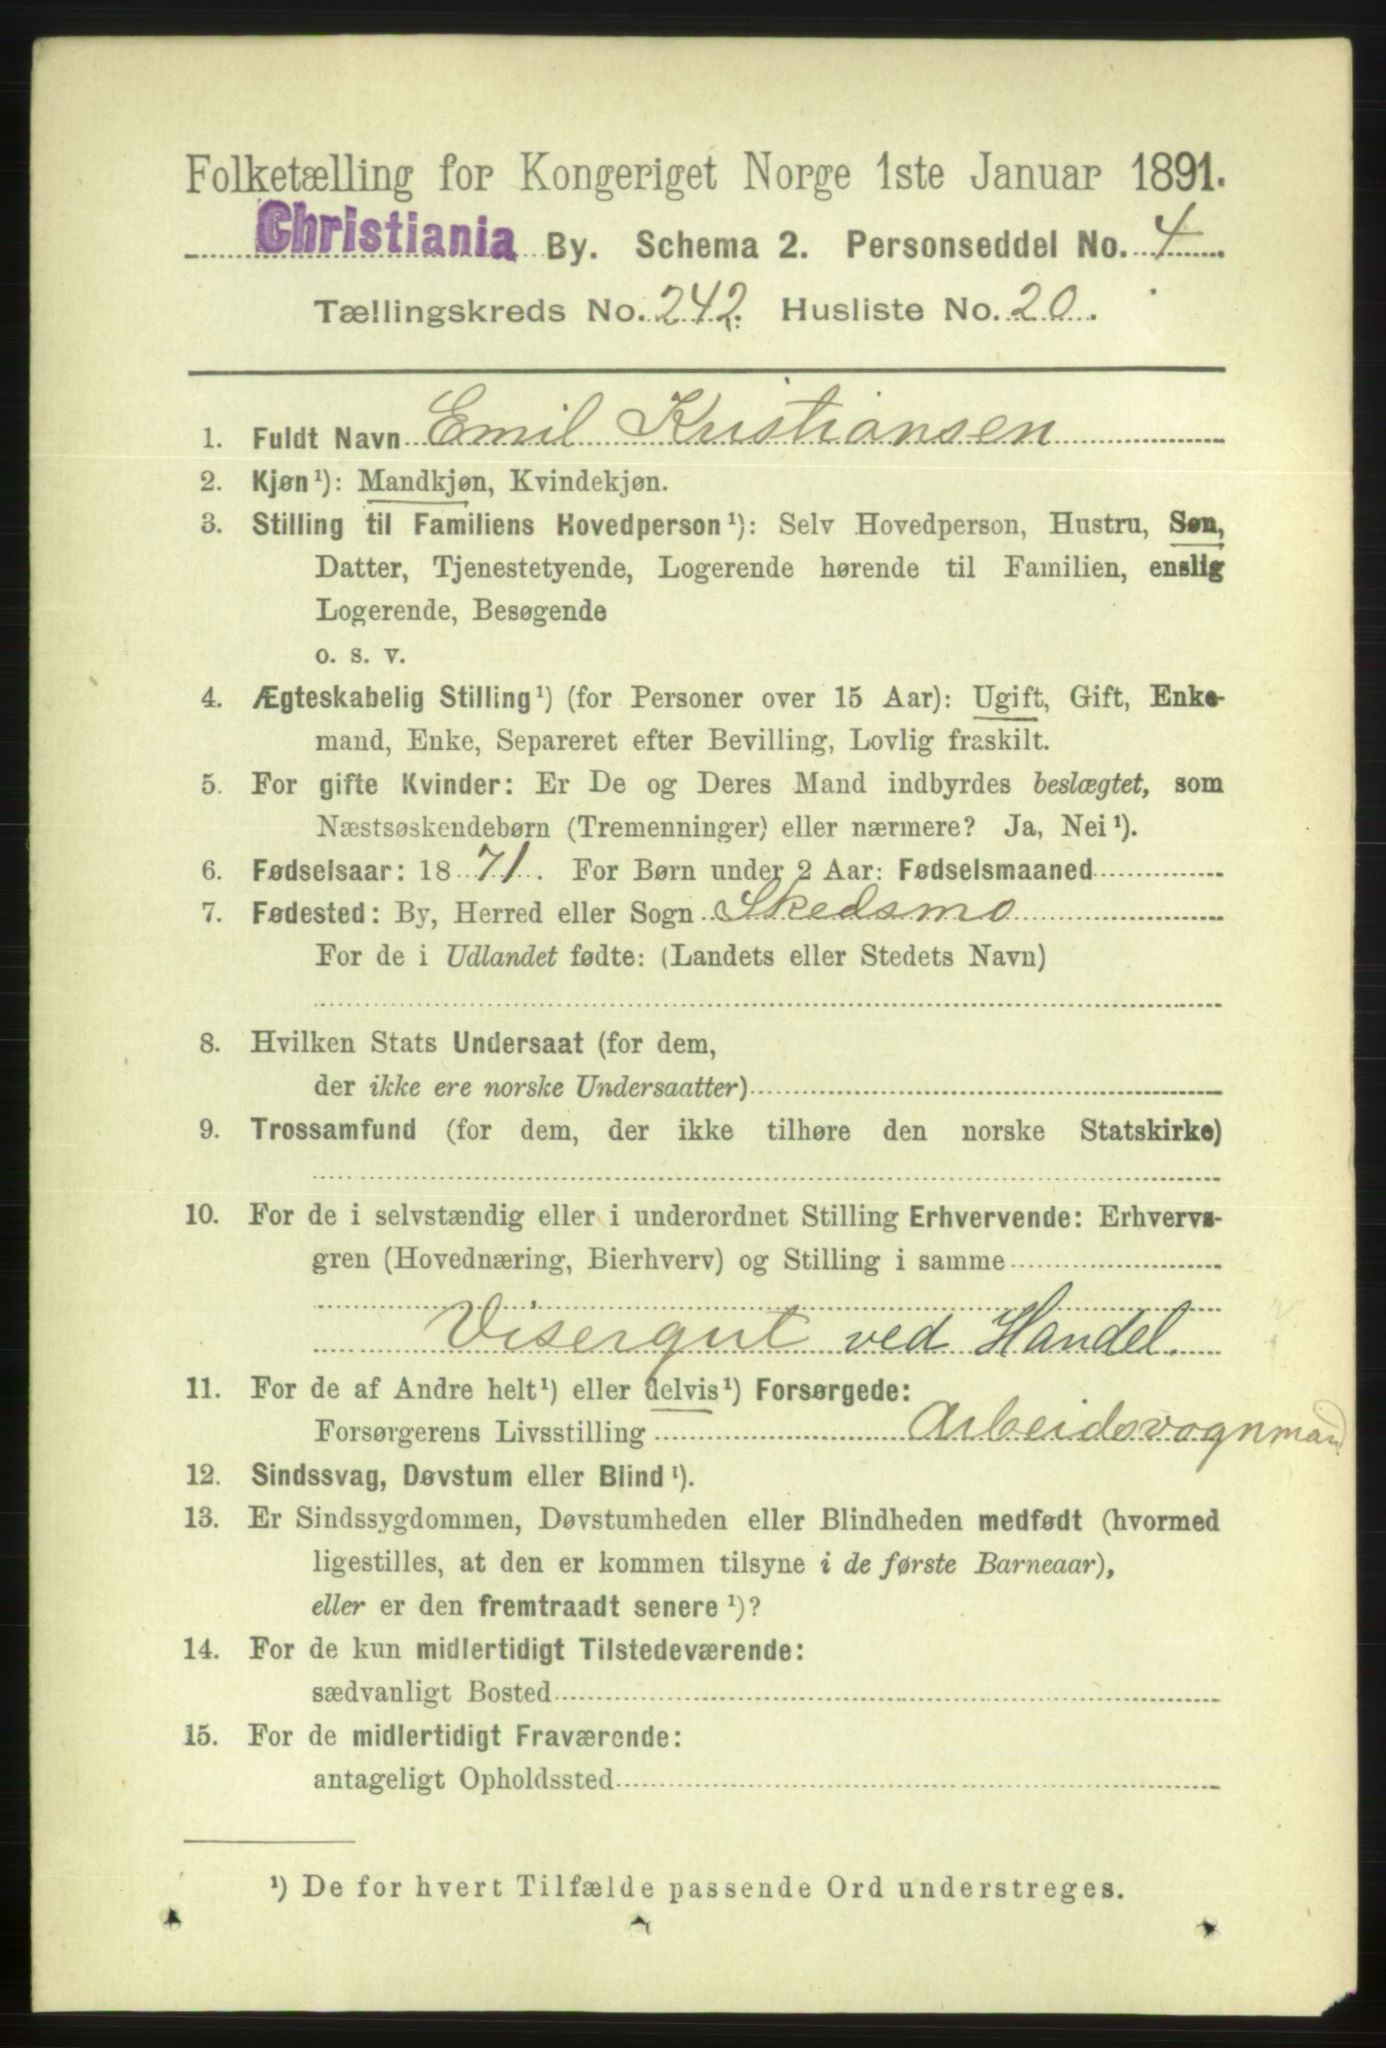 Folketælling for Kongeriget Norge 1ste Januar 1891.
Christiania By. Schema 2. Personseddel No. 4
Tællingskreds No. 242. Husliste No. 20.
1. Fuldt Navn Emil Kristiansen
2. Kjøn¹): Mandkjøn, Kvindekjøn.
3. Stilling til Familiens Hovedperson¹): Selv Hovedperson, Hustru, Søn,
Datter, Tjenestetyende, Logerende hørende til Familien, enslig
Logerende, Besøgende
o. s. v.
4. Ægteskabelig Stilling¹) (for Personer over 15 Aar): Ugift, Gift, Enke-
mand, Enke, Separeret efter Bevilling, Lovlig fraskilt.
5. For gifte Kvinder: Er De og Deres Mand indbyrdes beslægtet, som
Næstsøskendebørn (Tremenninger) eller nærmere? Ja, Nei¹).
6. Fødselsaar: 1871. For Børn under 2 Aar: Fødselsmaaned
7. Fødested: By, Herred eller Sogn Skedsmo
For de i Udlandet fødte: (Landets eller Stedets Navn)
8. Hvilken Stats Undersaat (for dem,
der ikke ere norske Undersaatter)
9. Trossamfund (for dem, der ikke tilhøre den norske Statskirke)
10. For de i selvstændig eller i underordnet Stilling Erhvervende: Erhvervs-
gren (Hovednæring, Bierhverv) og Stilling i samme
Visergut ved Handel.
11. For de af Andre helt¹) eller delvis¹) Forsørgede:
Forsørgerens Livsstilling Arbeidsvognmand
12. Sindssvag, Døvstum eller Blind¹).
13. Er Sindssygdommen, Døvstumheden eller Blindheden medfødt (hvormed
ligestilles, at den er kommen tilsyne i de første Barneaar),
eller er den fremtraadt senere¹)?
14. For de kun midlertidigt Tilstedeværende:
sædvanligt Bosted
15. For de midlertidigt Fraværende:
antageligt Opholdssted
¹) De for hvert Tilfælde passende Ord understreges.